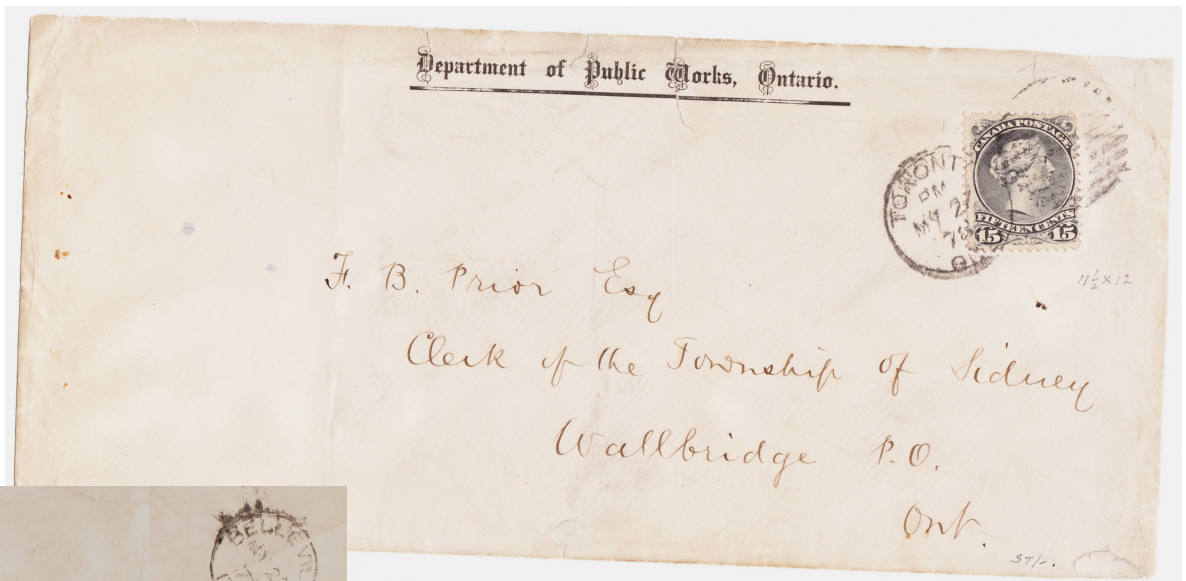 Department of Public Works, Ontario.
CANADA POSTAGE
FIFTEEN CENTS
15 15
TORONTO
PM
MY 2
78
11½ x 12
F. B. Prior Esq
Clerk of the Township of Sidney
Wallbridge P.O.
Ont.
BELLEVI